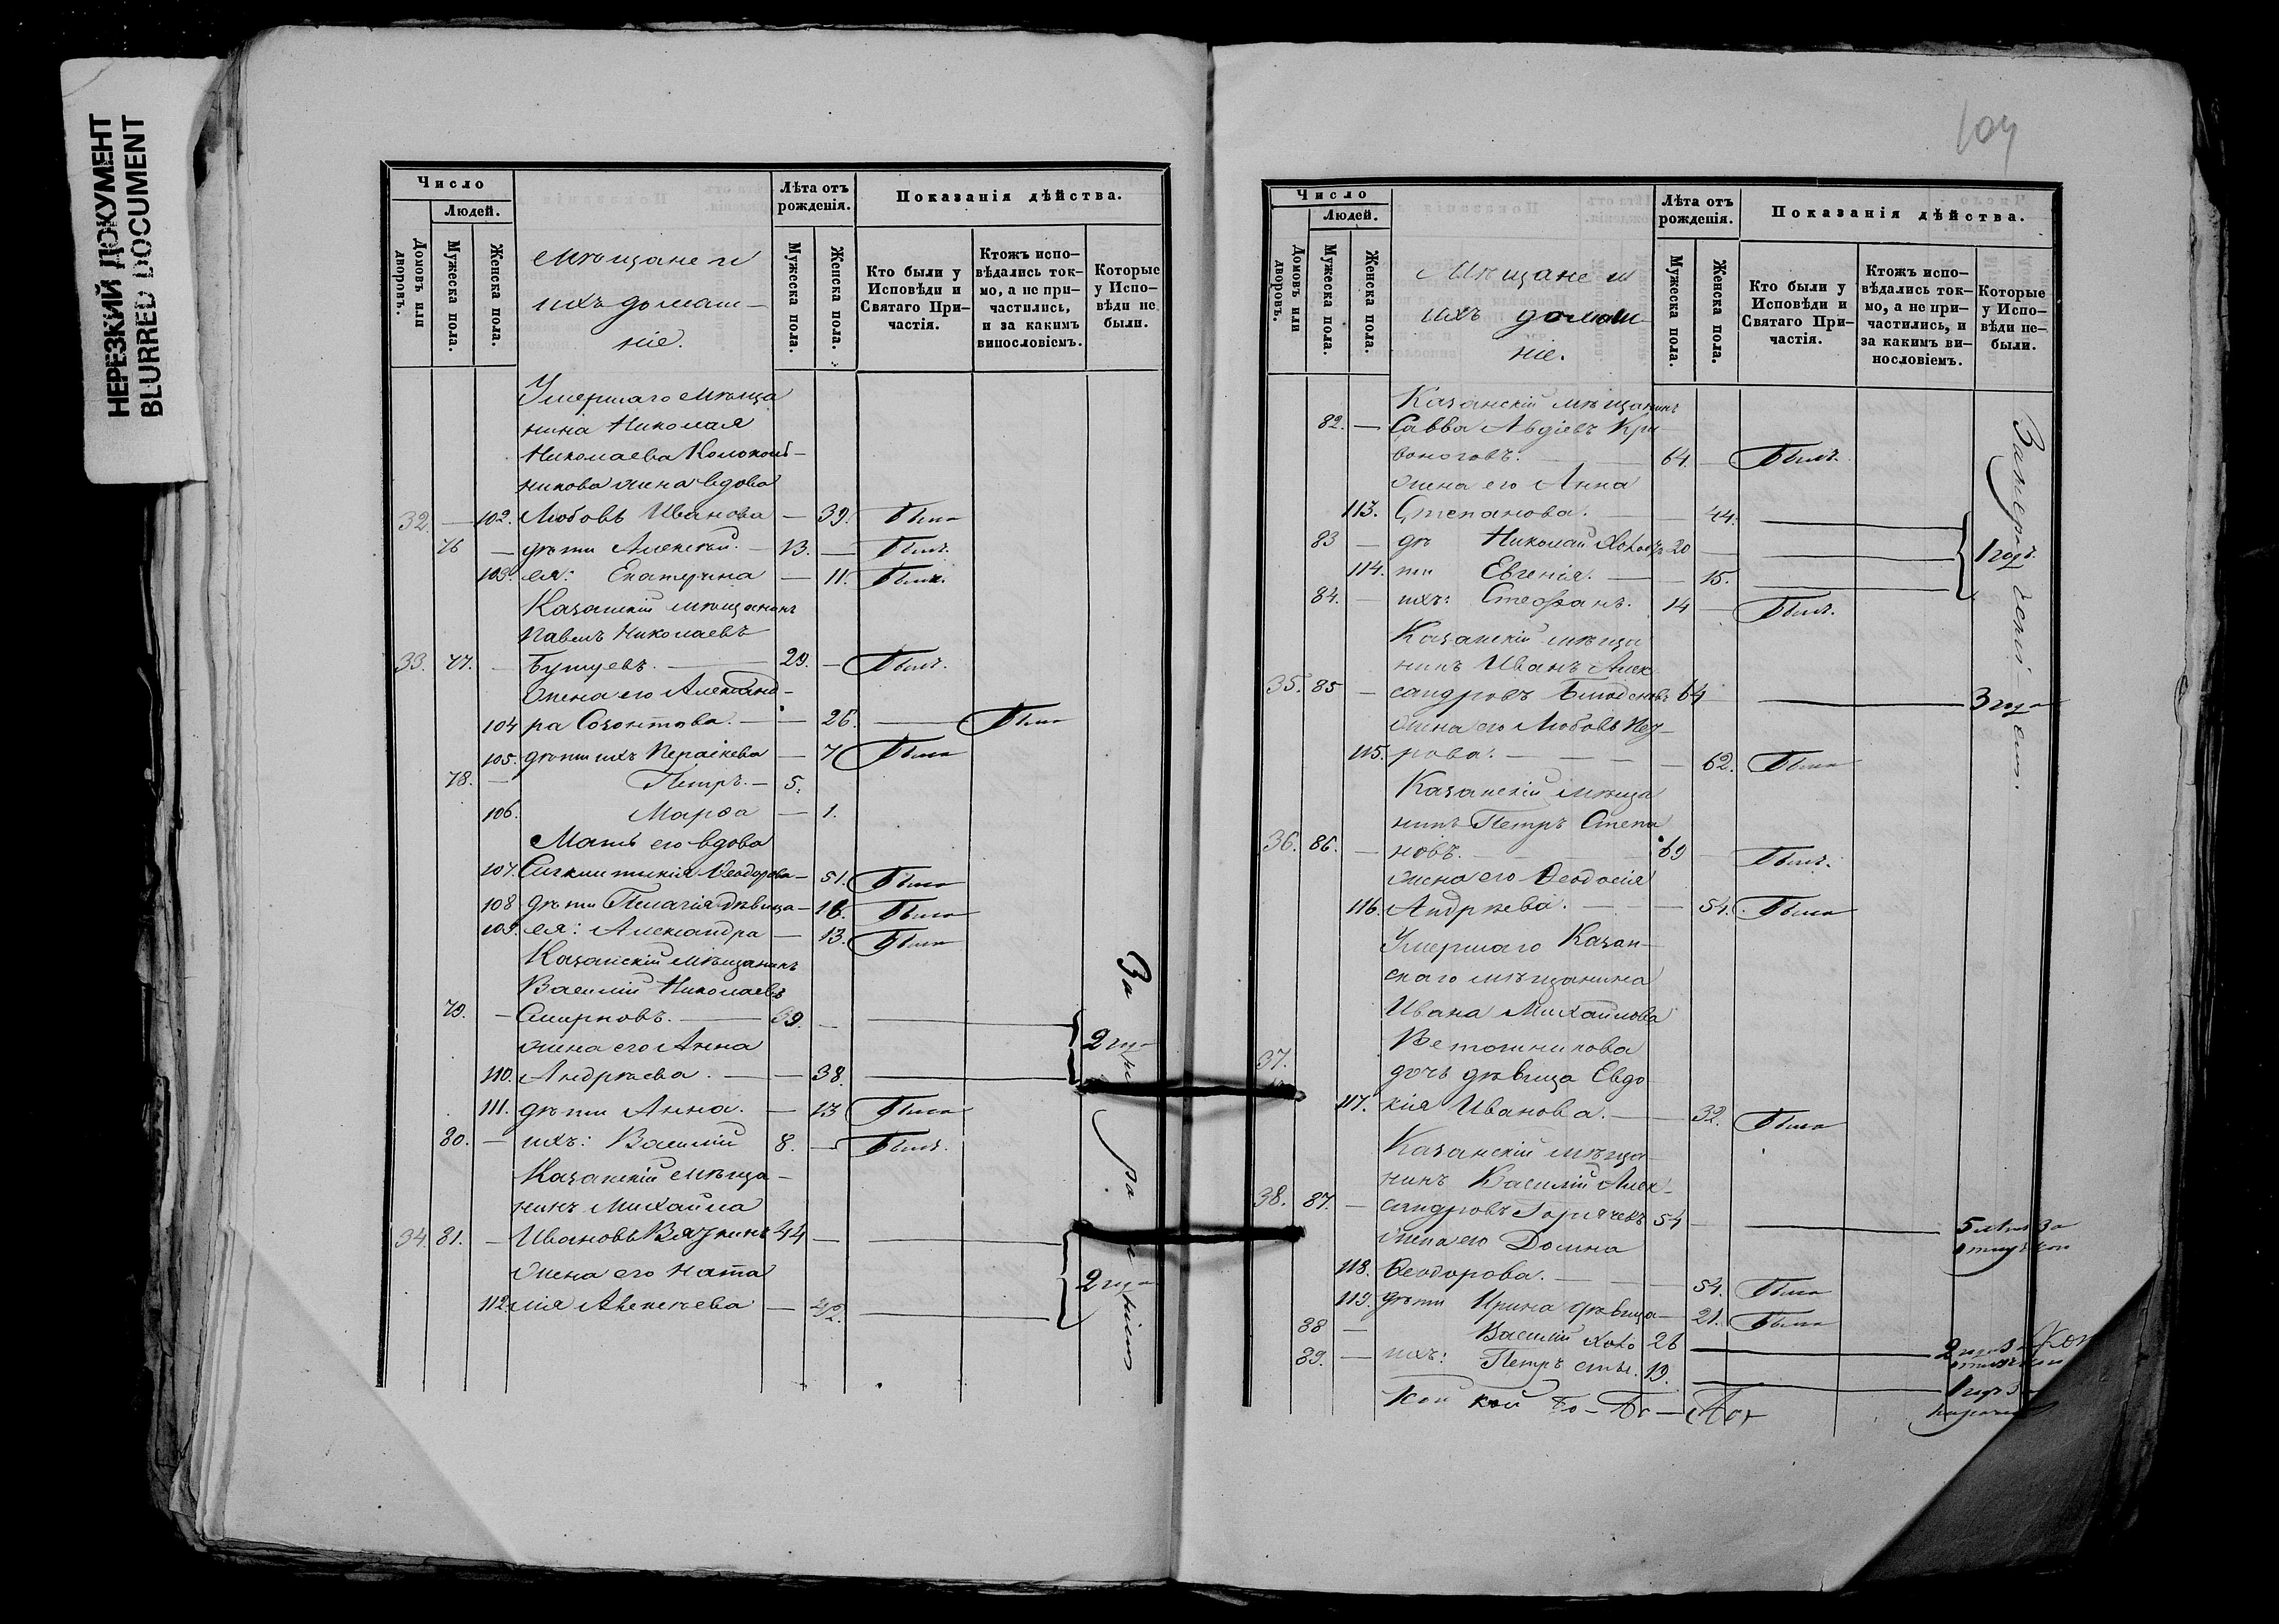 НЕРЕЗКИЙ ДОКУМЕНТ
BLURRED DOCUMENT
Число
Людей.
Домовъ или дворовъ.
Мужеска пола.
Женска пола.
Мѣщане и
ихъ домаш-
ніе.
Лѣта отъ рожденія.
Мужеска пола.
Женска пола.
Показанія дѣйства.
Кто были у Исповѣди и Святаго Причастія.
Ктожъ исповѣдались токмо, а не причастились, и за какимъ винословіемъ.
Которые у Исповѣди не были.
Умершаго мѣща
нина Николая
Николаева Колоколь-
никова жена вдова
32 — 102. Любовь Иванова — 39. Была
76 — дѣти Алексѣй. — 13. — Былъ.
103. ея: Екатерина — 11. Была.
Казанскій мѣщанинъ
Павелъ Николаевъ
33. 77. — 29. — Былъ.
Жена его Александ-
104 ра Созонтова. — — 26. — Была
105. дѣти ихъ Параскева — 7 Была
78. — Петръ. — 5.
106. Марѳа — 1.
Мать его вдова
107. Ѳеодорова — 51. Была
108 дѣти Пелагія дѣвица — 16. Была
109. ея: Александра — 13. Была
Казанскій мѣщанинъ
Василій Николаевъ
79. — Смирновъ. — 39. —
жена его Анна
110. Андреева. — — 38. — 2 года
111. дѣти Анна. — 13 Была
80. — ихъ: Василій 8. — Былъ.
Казанскій мѣща-
нинъ Михайла
34. 81. — Ивановъ 44 —
Жена его Ната
112. лія Алексѣева — 42. — 2 года
За
104
Число
Людей.
Домовъ или дворовъ.
Мужеска пола.
Женска пола.
Мѣщане и
ихъ домаш-
ніе.
Лѣта отъ рожденія.
Мужеска пола.
Женска пола.
Показанія дѣйства.
Кто были у Исповѣди и Святаго Причастія.
Ктожъ исповѣдались токмо, а не причастились, и за какимъ винословіемъ.
Которые у Исповѣди не были.
Казанскій мѣщанинъ
82. — Савва Авдіевъ Кри
воноговъ. — 64. — Былъ.
Жена его Анна
113. Степанова. — — 44. —
83 — дѣ Николай Холостъ 20 — 1 годъ.
114. ти Евгенія. — — 15. —
84. — ихъ: Стефанъ. 14 — Былъ.
Казанскій мѣща
нинъ Иванъ Алек
35. 85 — сандровъ 64 — 3 года
Жена его Любовь Пет-
115. рова. — — 62. Была
Казанскій мѣща
нинъ Петръ Степа
36. 86. — новъ. — 69 — Былъ.
Жена его Ѳеодосія
116. Андреева. — — 54. Была
Умершаго Казан-
скаго мѣщанина
Ивана Михайлова
Ветошникова
37. дочь дѣвица Евдо
117. кія Иванова. — — 32. Была
Казанскій мѣща-
нинъ Василій Алек-
38. 87. — сандровъ Горячевъ 54 — 5 лѣтъ За
отлучкою
жена его Домна
118. Ѳеодорова. — — 54. Была
119. дѣти Ирина дѣвица — 21. Была
88 — Василій Холо 26 — 2 года
89. — ихъ: Петръ сты. 19. — 1 годъ